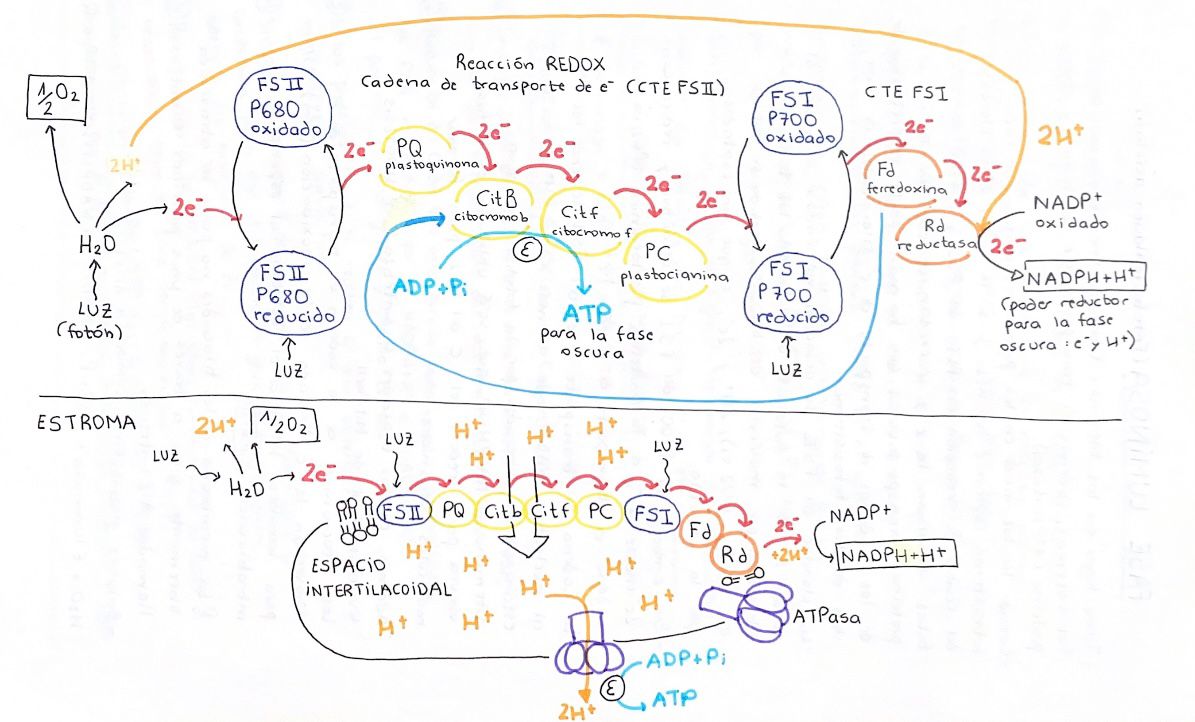 Reacción REDOX
Cadena de transporte de e⁻ (CTE FSII)
CTE FSI
1/2 O₂
2H⁺
2e⁻
H₂O
LUZ
(fotón)
FSII
P680
oxidado
FSII
P680
reducido
LUZ
2e⁻
PQ
plastoquinona
2e⁻
CitB
citocromo b
2e⁻
Citf
citocromo f
2e⁻
PC
plastocianina
2e⁻
ADP+Pi
ε
ATP
para la fase
oscura
FSI
P700
oxidado
FSI
P700
reducido
LUZ
2e⁻
Fd
ferredoxina
2e⁻
Rd
reductasa
2H⁺
2e⁻
NADP⁺
oxidado
NADPH+H⁺
(poder reductor
para la fase
oscura: e⁻ y H⁺)
ESTROMA
LUZ
2H⁺
1/2O₂
H₂O
2e⁻
LUZ
H⁺
H⁺
H⁺
H⁺
H⁺
LUZ
FSII
PQ
Citb
Citf
PC
FSI
Fd
Rd
2e⁻
+2H⁺
NADP⁺
NADPH+H⁺
ESPACIO
INTERTILACOIDAL
H⁺
H⁺
H⁺
H⁺
H⁺
H⁺
H⁺
ATPasa
ADP+Pi
ε
ATP
2H⁺